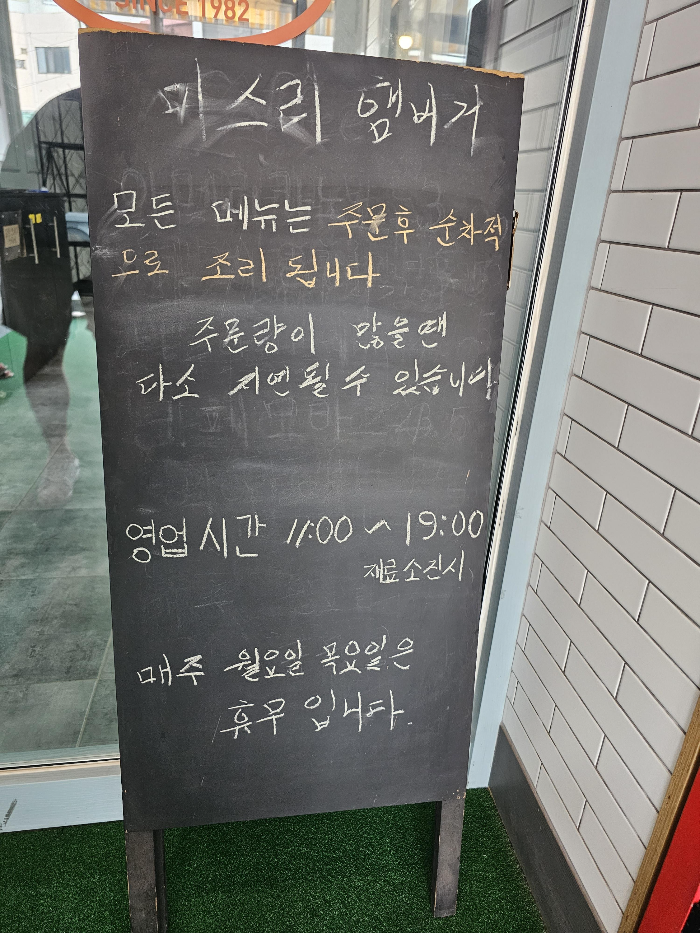 SINCE 1982
미스리 햄버거
모든 메뉴는 주문후 순차적
으로 조리 됩니다
주문량이 많을땐
다소 지연될 수 있습니다
영업시간 11:00 ~ 19:00
재료소진시
매주 월요일 목요일은
휴무 입니다.